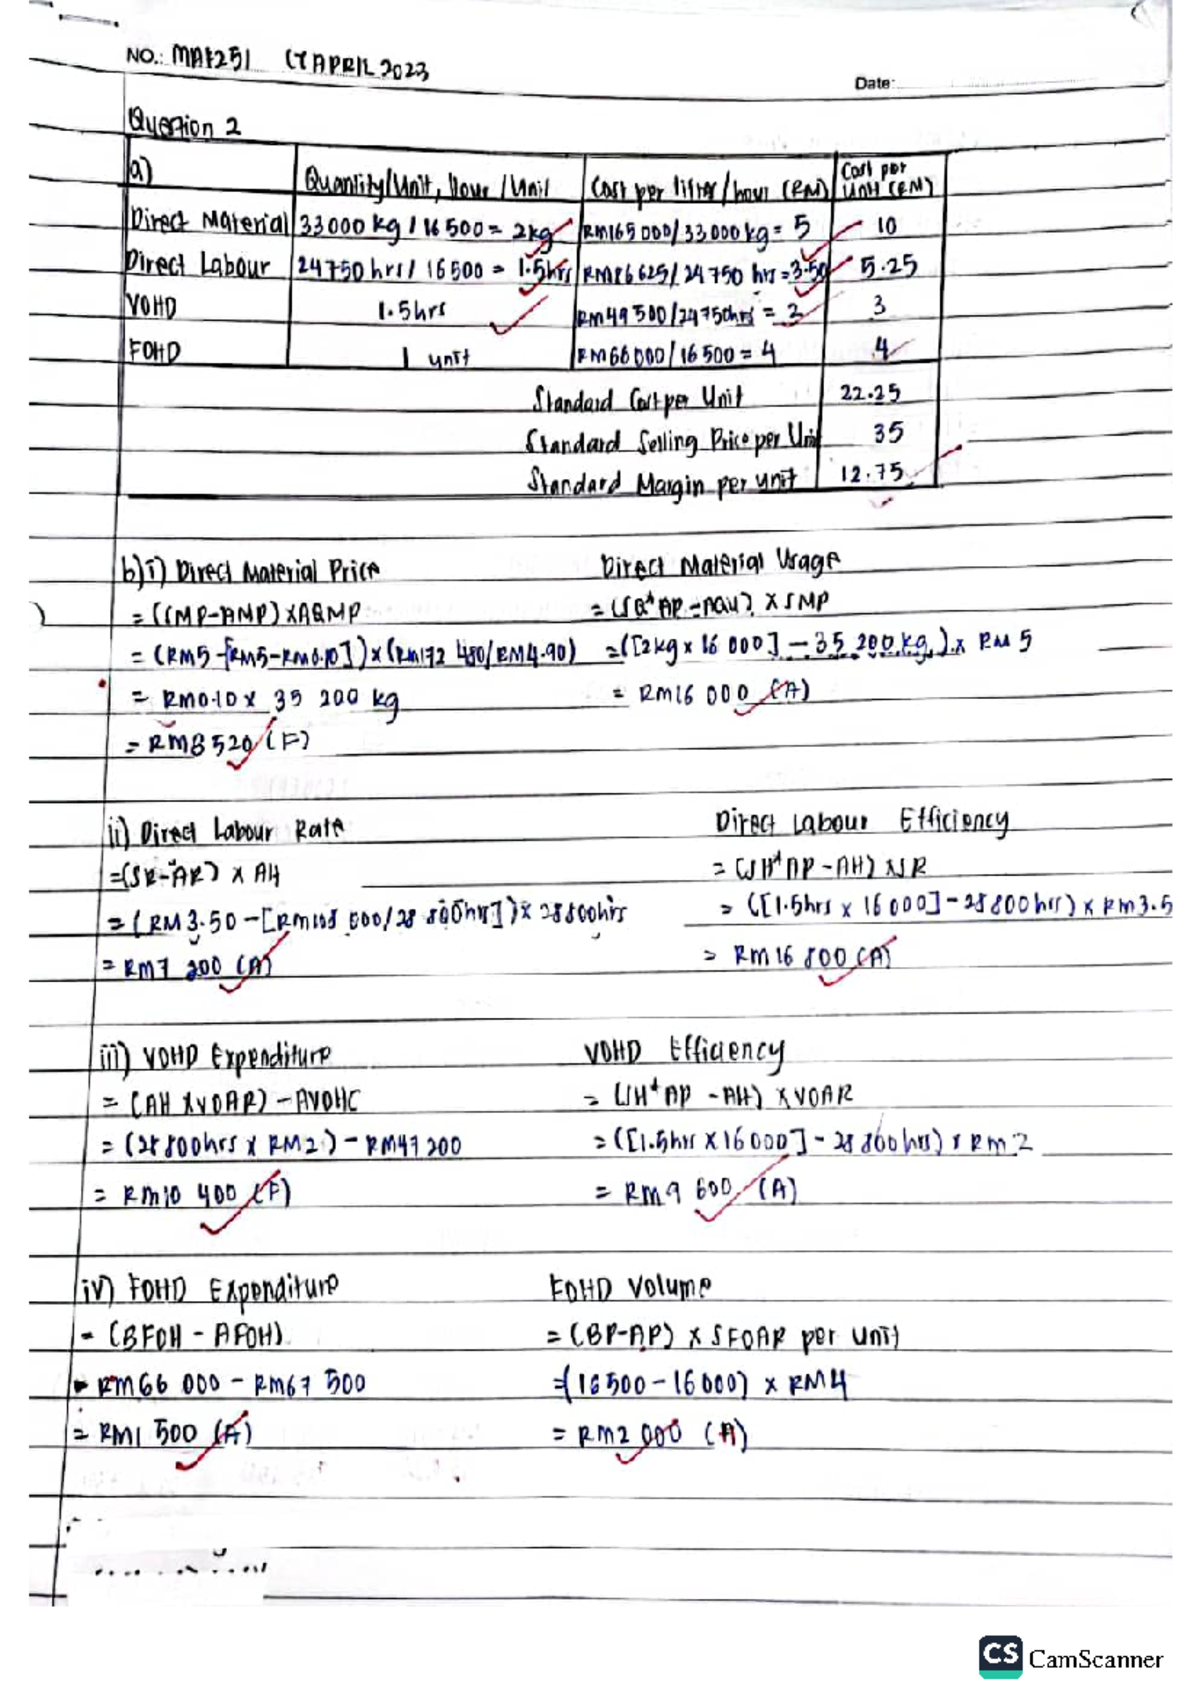 NO.: MAF251 CT APRIL 2023
Date:
Question 2
a) Quantity/Unit, Hour/Unit Cost per litres/hour (RM) Cost per Unit (RM)
Direct Material 33000 kg / 16 500 = 2kg RM165 000/33 000kg = 5 10
Direct Labour 24750 hrs / 16500 = 1.5hrs RM86625/24 750 hrs = 3.50 5.25
VOHD 1.5hrs RM49 500/24750hrs = 2 3
FOHD 1 unit RM66000/16 500 = 4 4
Standard Cost per Unit 22.25
Standard Selling Price per Unit 35
Standard Margin per unit 12.75
b) i) Direct Material Price Direct Material Usage
= (SMP-AMP) X AQMP = (SQ*AP - AQU) X SMP
= (RM5-[RM5-RM0.10]) x (RM172 480/RM4.90) = ([2kg x 16 000] - 35 200 kg) x RM 5
= RM0.10 x 35 200 kg = RM16 000 (A)
= RM3 520 (F)
ii) Direct Labour Rate Direct Labour Efficiency
= (SR-AR) X AH = (SH*AP - AH) X SR
= (RM 3.50 - [RM108 000/28 800hrs]) x 28800hrs = ([1.5hrs x 16 000] - 28800 hrs) x RM3.5
= RM7 200 (A) = RM 16 800 (A)
iii) VOHD Expenditure VOHD Efficiency
= (AH X VOAR) - AVOHC = (SH*AP - AH) X VOAR
= (28 800hrs x RM2) - RM47 200 = ([1.5hrs X 16 000] - 28 800 hrs) x RM 2
= RM10 400 (F) = RM9 600 (A)
iv) FOHD Expenditure FOHD Volume
= (BFOH - AFOH) = (BP-AP) X SFOAR per unit
= RM66 000 - RM67 500 = (16 500 - 16 000) x RM4
= RM1 500 (A) = RM2 000 (A)
CS CamScanner